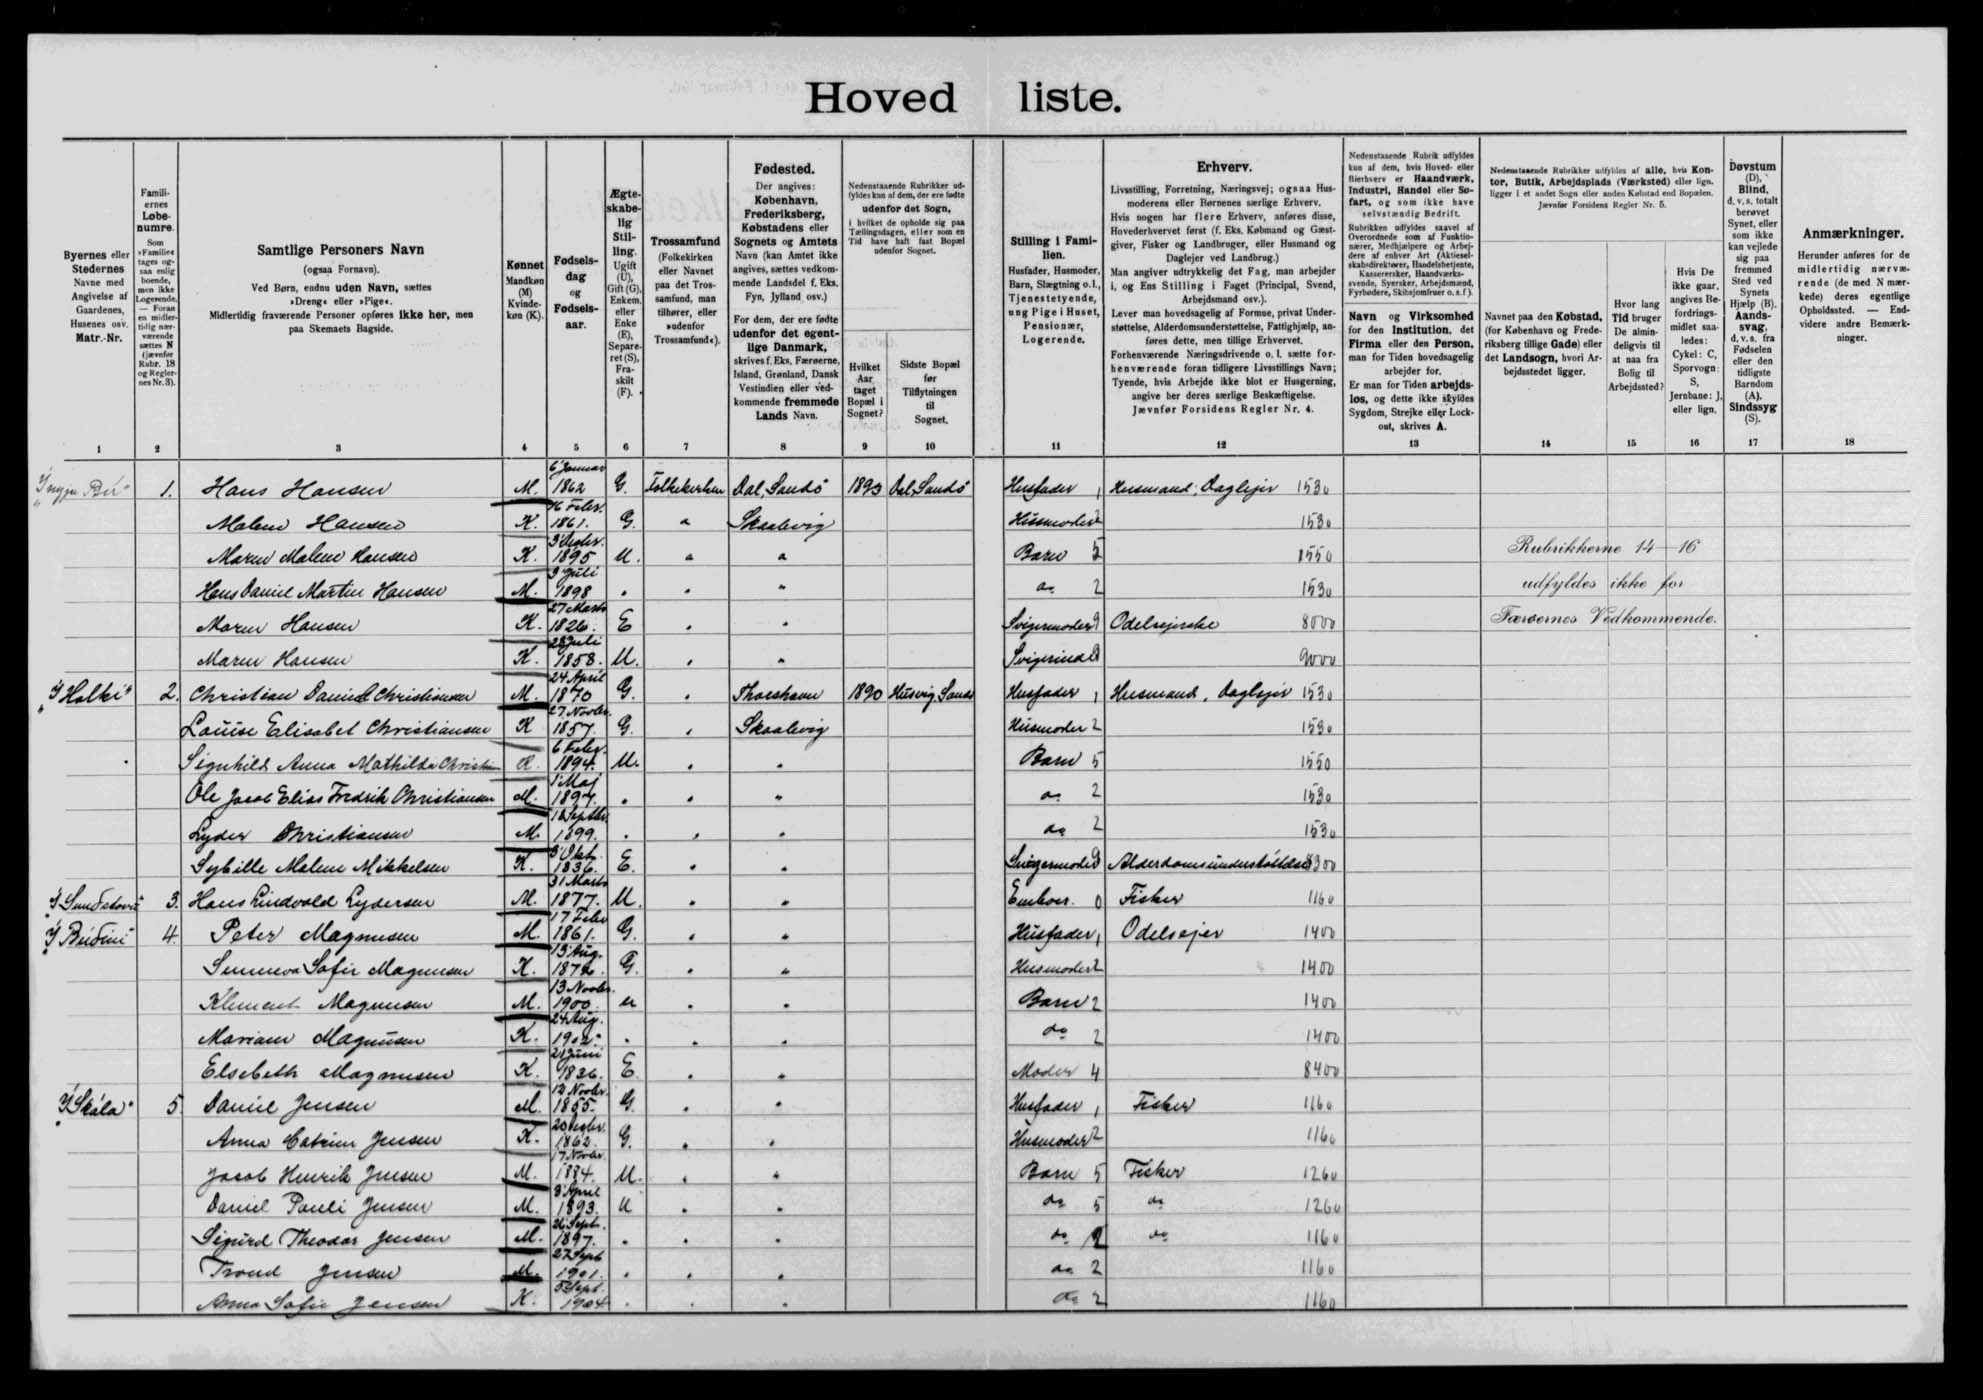 Hovedliste.
Byernes eller Stedernes Navne med Angivelse af Gaardenes, Husenes osv. Matr.-Nr.
Familiernes Løbenumre.
Som »Familie« tages ogsaa enlig boende, men ikke Logerende. — Foran en midlertidig nærværende sættes N (jævnfør Rubr. 18 og Reglernes Nr. 3).
Samtlige Personers Navn
(ogsaa Fornavn).
Ved Børn, endnu uden Navn, sættes »Dreng« eller »Pige«.
Midlertidig fraværende Personer opføres ikke her, men paa Skemaets Bagside.
Kønnet Mandkøn (M) Kvindekøn (K).
Fødselsdag og Fødselsaar.
Ægteskabelig Stilling. Ugift (U), Gift (G), Enkem. eller Enke (E), Separeret (S), Fraskilt (F).
Trossamfund (Folkekirken eller Navnet paa det Trossamfund, man tilhører, eller »udenfor Trossamfund«).
Fødested.
Der angives: København, Frederiksberg, Købstadens eller Sognets og Amtets Navn (kan Amtet ikke angives, sættes vedkommende Landsdel f. Eks. Fyn, Jylland osv.)
For dem, der ere fødte udenfor det egentlige Danmark, skrives f. Eks. Færøerne, Island, Grønland, Dansk Vestindien eller vedkommende fremmede Lands Navn.
Nedenstaaende Rubrikker udfyldes kun af dem, der ere fødte udenfor det Sogn, i hvilket de opholde sig paa Tællingsdagen, eller som en Tid have haft fast Bopæl udenfor Sognet.
Hvilket Aar taget Bopæl i Sognet?
Sidste Bopæl før Tilflytningen til Sognet.
Stilling i Familien.
Husfader, Husmoder, Barn, Slægtning o. l., Tjenestetyende, ung Pige i Huset, Pensionær, Logerende.
Erhverv.
Livsstilling, Forretning, Næringsvej; ogsaa Husmoderens eller Børnenes særlige Erhverv.
Hvis nogen har flere Erhverv, anføres disse, Hovederhvervet først (f. Eks. Købmand og Gæstgiver, Fisker og Landbruger, eller Husmand og Daglejer ved Landbrug.)
Man angiver udtrykkelig det Fag, man arbejder i, og Ens Stilling i Faget (Principal, Svend, Arbejdsmand osv.).
Lever man hovedsagelig af Formue, privat Understøttelse, Alderdomsunderstøttelse, Fattighjælp, anføres dette, men tillige Erhvervet.
Forhenværende Næringsdrivende o. l. sætte forhenværende foran tidligere Livsstillings Navn; Tyende, hvis Arbejde ikke blot er Husgerning, angive her deres særlige Beskæftigelse.
Jævnfør Forsidens Regler Nr. 4.
Nedenstaaende Rubrik udfyldes kun af dem, hvis Hoved- eller Bierhverv er Haandværk, Industri, Handel eller Søfart, og som ikke have selvstændig Bedrift.
Rubrikken udfyldes saavel af Overordnede som af Funktionærer, Medhjælpere og Arbejdere af enhver Art (Aktieselskabsdirektører, Handelsbetjente, Kasserersker, Haandværkssvende, Syersker, Arbejdsmænd, Fyrbødere, Skibsjomfruer o. s. f.).
Navn og Virksomhed for den Institution, det Firma eller den Person, man for Tiden hovedsagelig arbejder for.
Er man for Tiden arbejdsløs, og dette ikke skyldes Sygdom, Strejke eller Lockout, skrives A.
Nedenstaaende Rubrikker udfyldes af alle, hvis Kontor, Butik, Arbejdsplads (Værksted) eller lign. ligger i et andet Sogn eller anden Købstad end Bopælen. Jævnfør Forsidens Regler Nr. 5.
Navnet paa den Købstad, (for København og Frederiksberg tillige Gade) eller det Landsogn, hvori Arbejdsstedet ligger.
Hvor lang Tid bruger De almindeligvis til at naa fra Bolig til Arbejdssted?
Hvis De ikke gaar, angives Befordringsmidlet saaledes: Cykel: C, Sporvogn: S, Jernbane: J, eller lign.
Døvstum (D), Blind, d. v. s. totalt berøvet Synet, eller som ikke kan vejlede sig paa fremmed Sted ved Synets Hjælp (B), Aandssvag, d. v. s. fra Fødselen eller den tidligste Barndom (A). Sindssyg (S).
Anmærkninger.
Herunder anføres for de midlertidig nærværende (de med N mærkede) deres egentlige Opholdssted. — Endvidere andre Bemærkninger.
1 2 3 4 5 6 7 8 9 10 11 12 13 14 15 16 17 18
1. Hans Hansen M. 6 Januar 1862 G. Folkekirken Dal, Sandö 1893 Dal, Sandö Husfader 1 Husmand, Daglejer 1530
Malene Hansen K. 16 Febr. 1861. G. " Skaalevig Husmoder 2 1530
Maren Malene Hansen K. 3 Decbr. 1895 U. " " Barn 5 1550
Hans Daniel Martin Hansen M. 3 Juli 1898 " " " do 2 1530
Maren Hansen K. 27 Marts 1826. E " " Svigermoder 9 Odelsejerske 8000
Maren Hansen K. 28 Juli 1858. U. " " Svigerinde 9 9000
Rubrikkerne 14—16
udfyldes ikke for
Færøernes Vedkommende.
"Í Holki" 2. Christian Daniel Christiansen M. 24 April 1870 G. " Thorshavn 1890 Husevig, Sandö Husfader 1 Husmand, Daglejer 1530
Louise Elisabet Christiansen K 27 Novbr. 1857. G. " Skaalevig Husmoder 2 1530
Signhild Anna Mathilda Christian K. 6 Febr. 1894. U. " " Barn 5 1550
Ole Jacob Elias Fredrik Christiansen M. 1 Maj 1897. " " " do 2 1530
Lyder Christiansen M. 18 Septbr. 1899. " " " do 2 1530
Sybille Malene Mikkelsen K. 3 Okt. 1836. E. " " Svigermoder 9 Alderdomsunderstöttelse 8300
3. Hans Lindvald Lydersen M. 31 Marts 1877. U. " " Enboer. 0 Fisker 1160
"Í Búðini" 4. Peter Magnusen M. 17 Febr 1861. G. " " Husfader 1 Odelsejer 1400
Sunneva Sofie Magnusen K. 13 Aug. 1872. G. " " Husmoder 2 1400
Klement Magnusen M. 13 Novbr. 1900. U " " Barn 2 1400
Mariann Magnusen K. 24 Aug. 1902. " " " do 2 1400
Elsebeth Magnusen K. 21 Juni 1836. E. " " Moder 4 8400
"Í Skála" 5. Daniel Jensen M. 12 Novbr. 1855. G. " " Husfader 1 Fisker 1160
Anna Catrine Jensen K. 20 Decbr. 1862. G. " " Husmoder 2 1160
Jacob Henrik Jensen M. 17 Novbr. 1884. U. " " Barn 5 Fisker 1260
Daniel Pauli Jensen M. 3 April 1893. U " " do 5 do 1260
Sigurd Theodor Jensen M. 26 Sept. 1897. " " " do 2 do 1160
Trond Jensen M. 27 Sept 1901. " " " do 2 1160
Anna Sofie Jensen K. 5 Sept. 1904 " " " do 2 1160